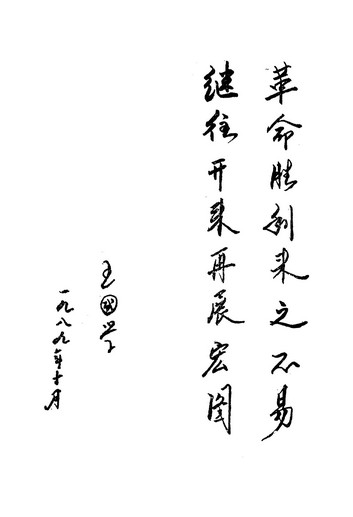 革命胜利来之不易
继往开来再展宏图
王国学
一九八九年十月